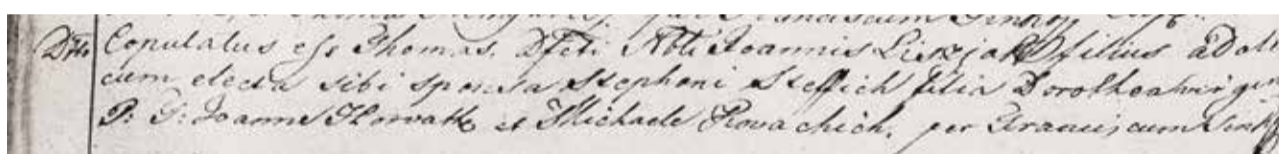 Franciscum
Dtto Copulatus est Thomas, Dfcti Joannis Liszjak filius adol
cum electa sibi sponsa Stephani Steffich filia Dorothea virgin
P: G: Joanne Horvath et Michaele Kovachich, per Franciscum